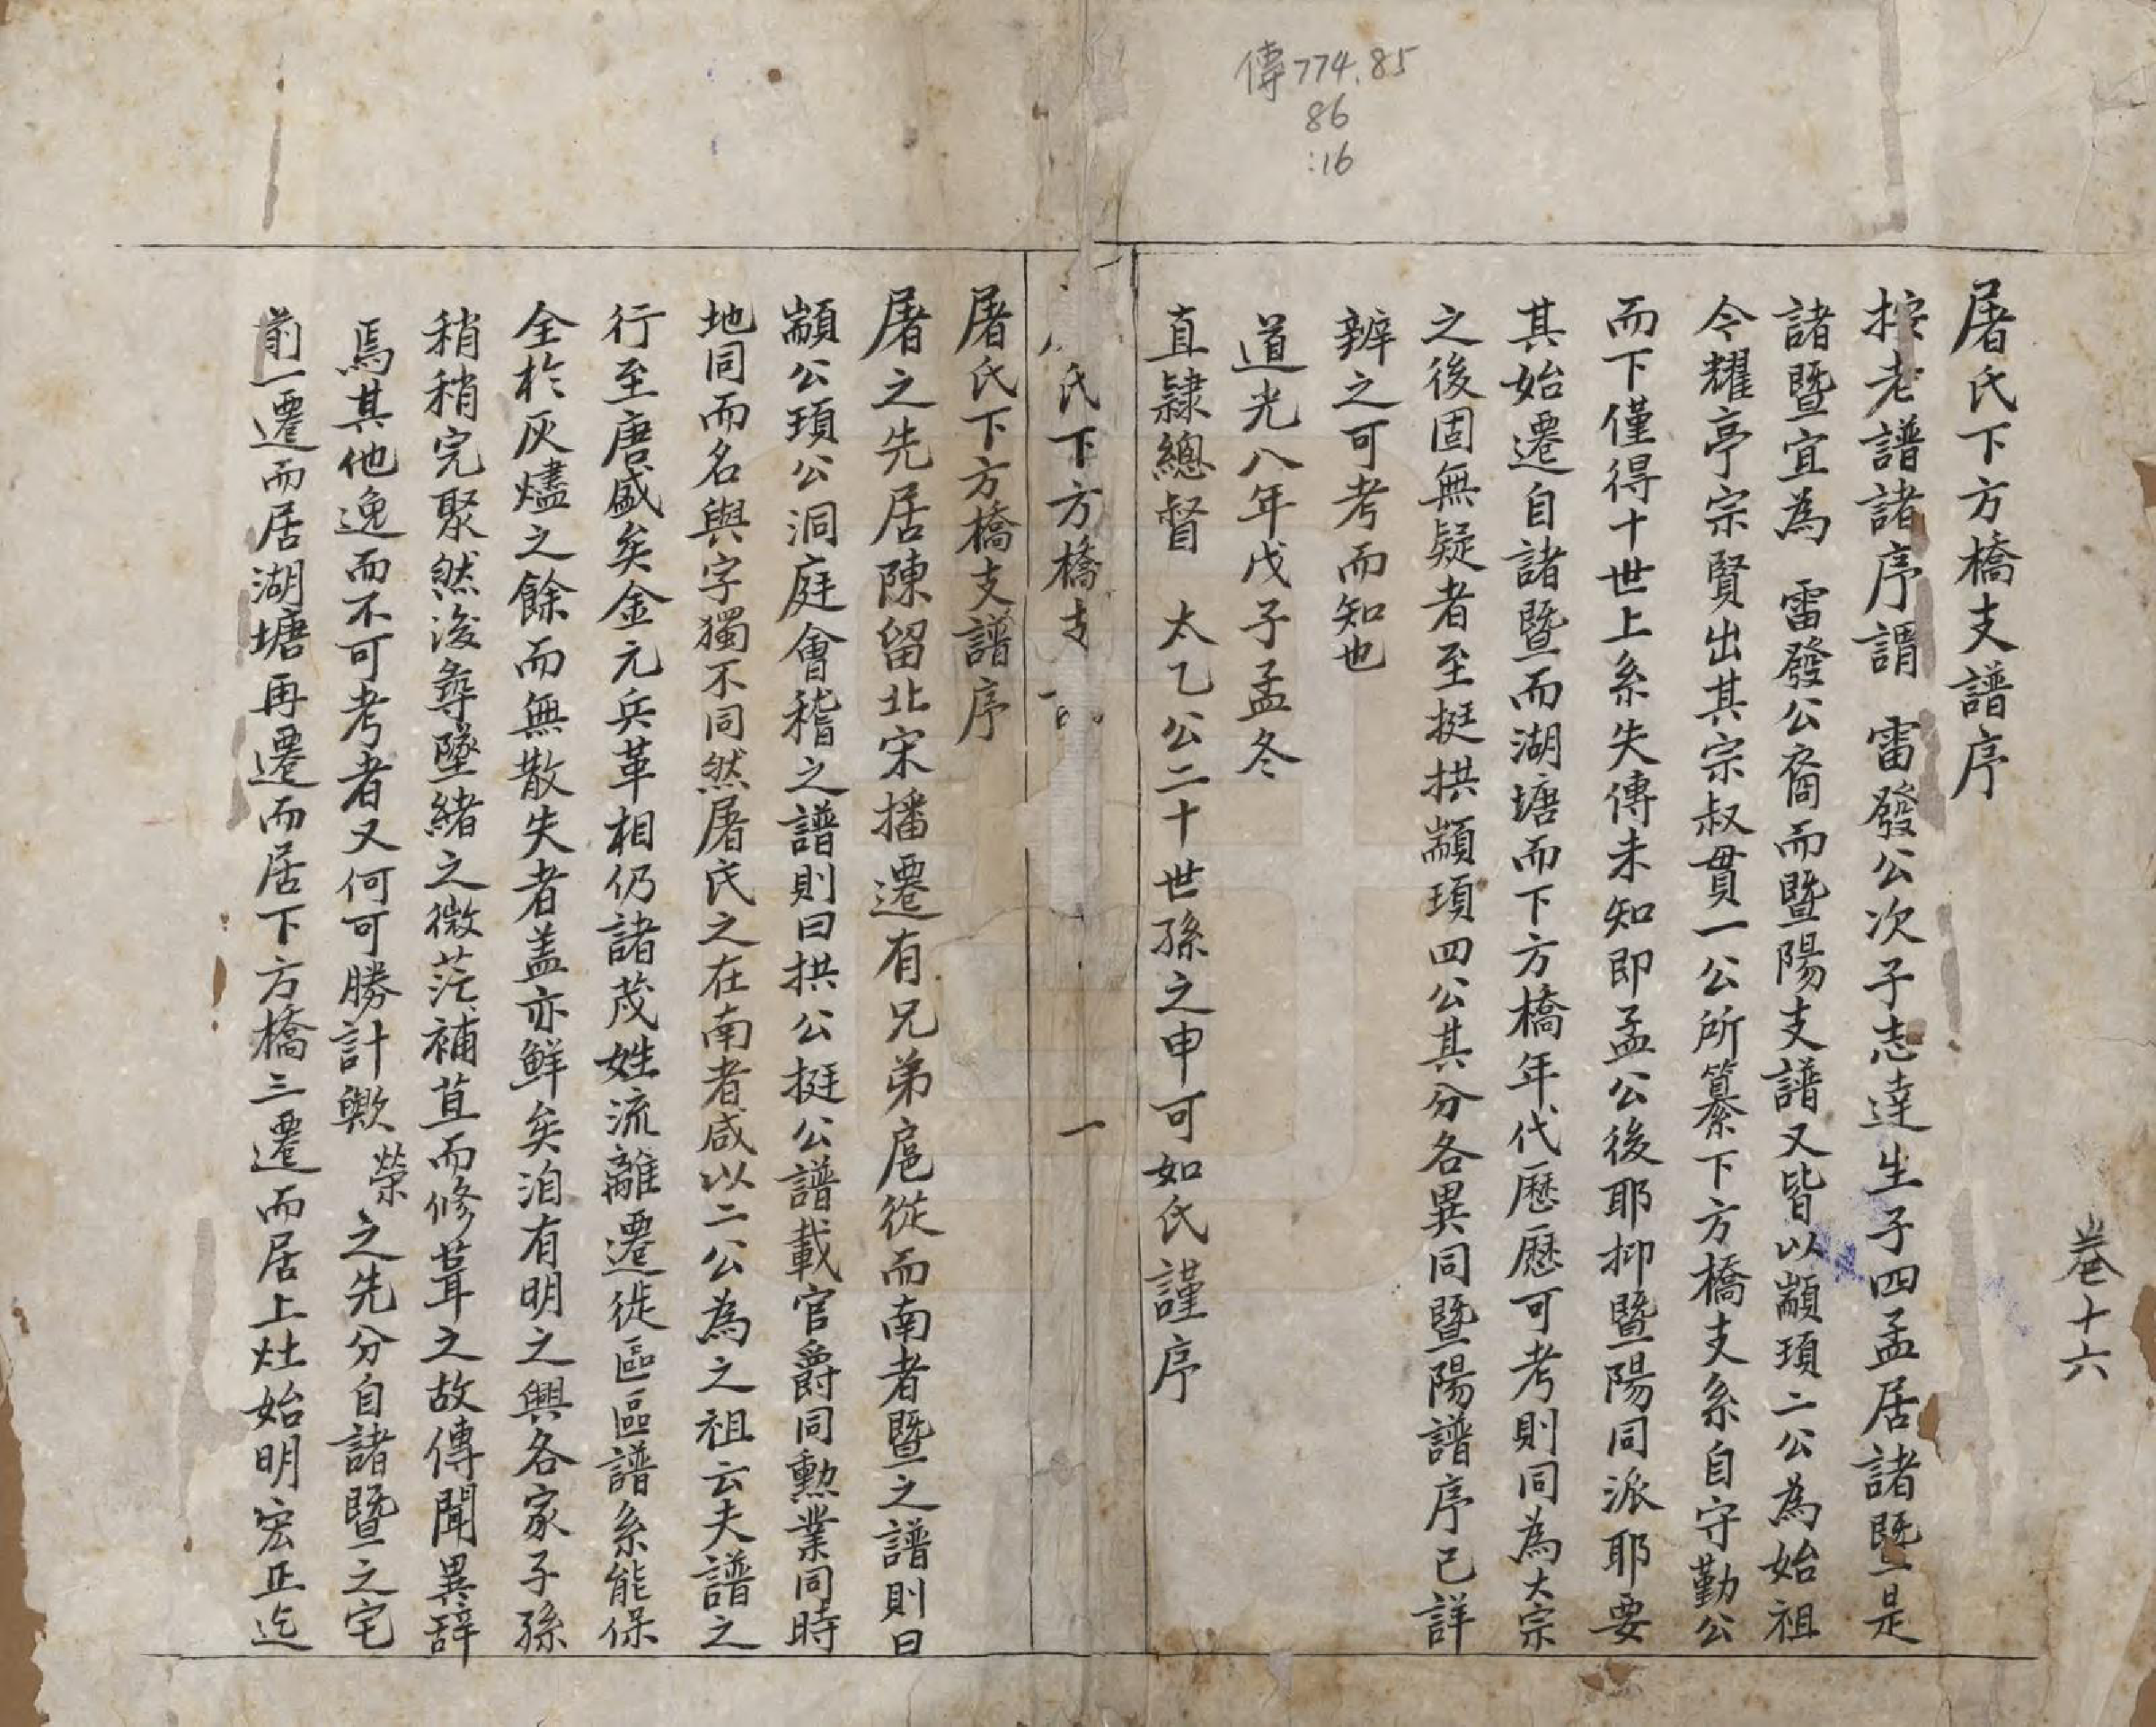 傳774.85
86
:16
卷十六
屠氏下方橋支譜序
按老譜諸序謂　雷發公次子志達生子四孟居諸暨是
諸暨宜為　雷發公裔而暨陽支譜又皆以顓頊二公為始祖
今耀亭宗賢出其宗叔貫一公所纂下方橋支系自守勤公
而下僅得十世上系失傳未知即孟公後耶抑暨陽同派耶要
其始遷自諸暨而湖塘而下方橋年代歷歷可考則同為大宗
之後固無疑者至挺拱顓頊四公其分各異同暨陽譜序已詳
辨之可考而知也
道光八年戊子孟冬
直隸總督　太乙公二十世孫之申可如氏謹序
氏下方橋支
一
屠氏下方橋支譜序
屠之先居陳留北宋播遷有兄弟扈從而南者暨之譜則曰
顓公頊公洞庭會稽之譜則曰拱公挺公譜載官爵同勲業同時
地同而名與字獨不同然屠氏之在南者咸以二公為之祖云夫譜之
行至唐盛矣金元兵革相仍諸茂姓流離遷徙區區譜系能保
全於灰燼之餘而無散失者盖亦鮮矣洎有明之興各家子孫
稍稍完聚然後尋墜緒之微茫補苴而修葺之故傳聞異辭
焉其他逸而不可考者又何可勝計歟　榮之先分自諸暨之宅
前一遷而居湖塘再遷而居下方橋三遷而居上灶始明宏正迄